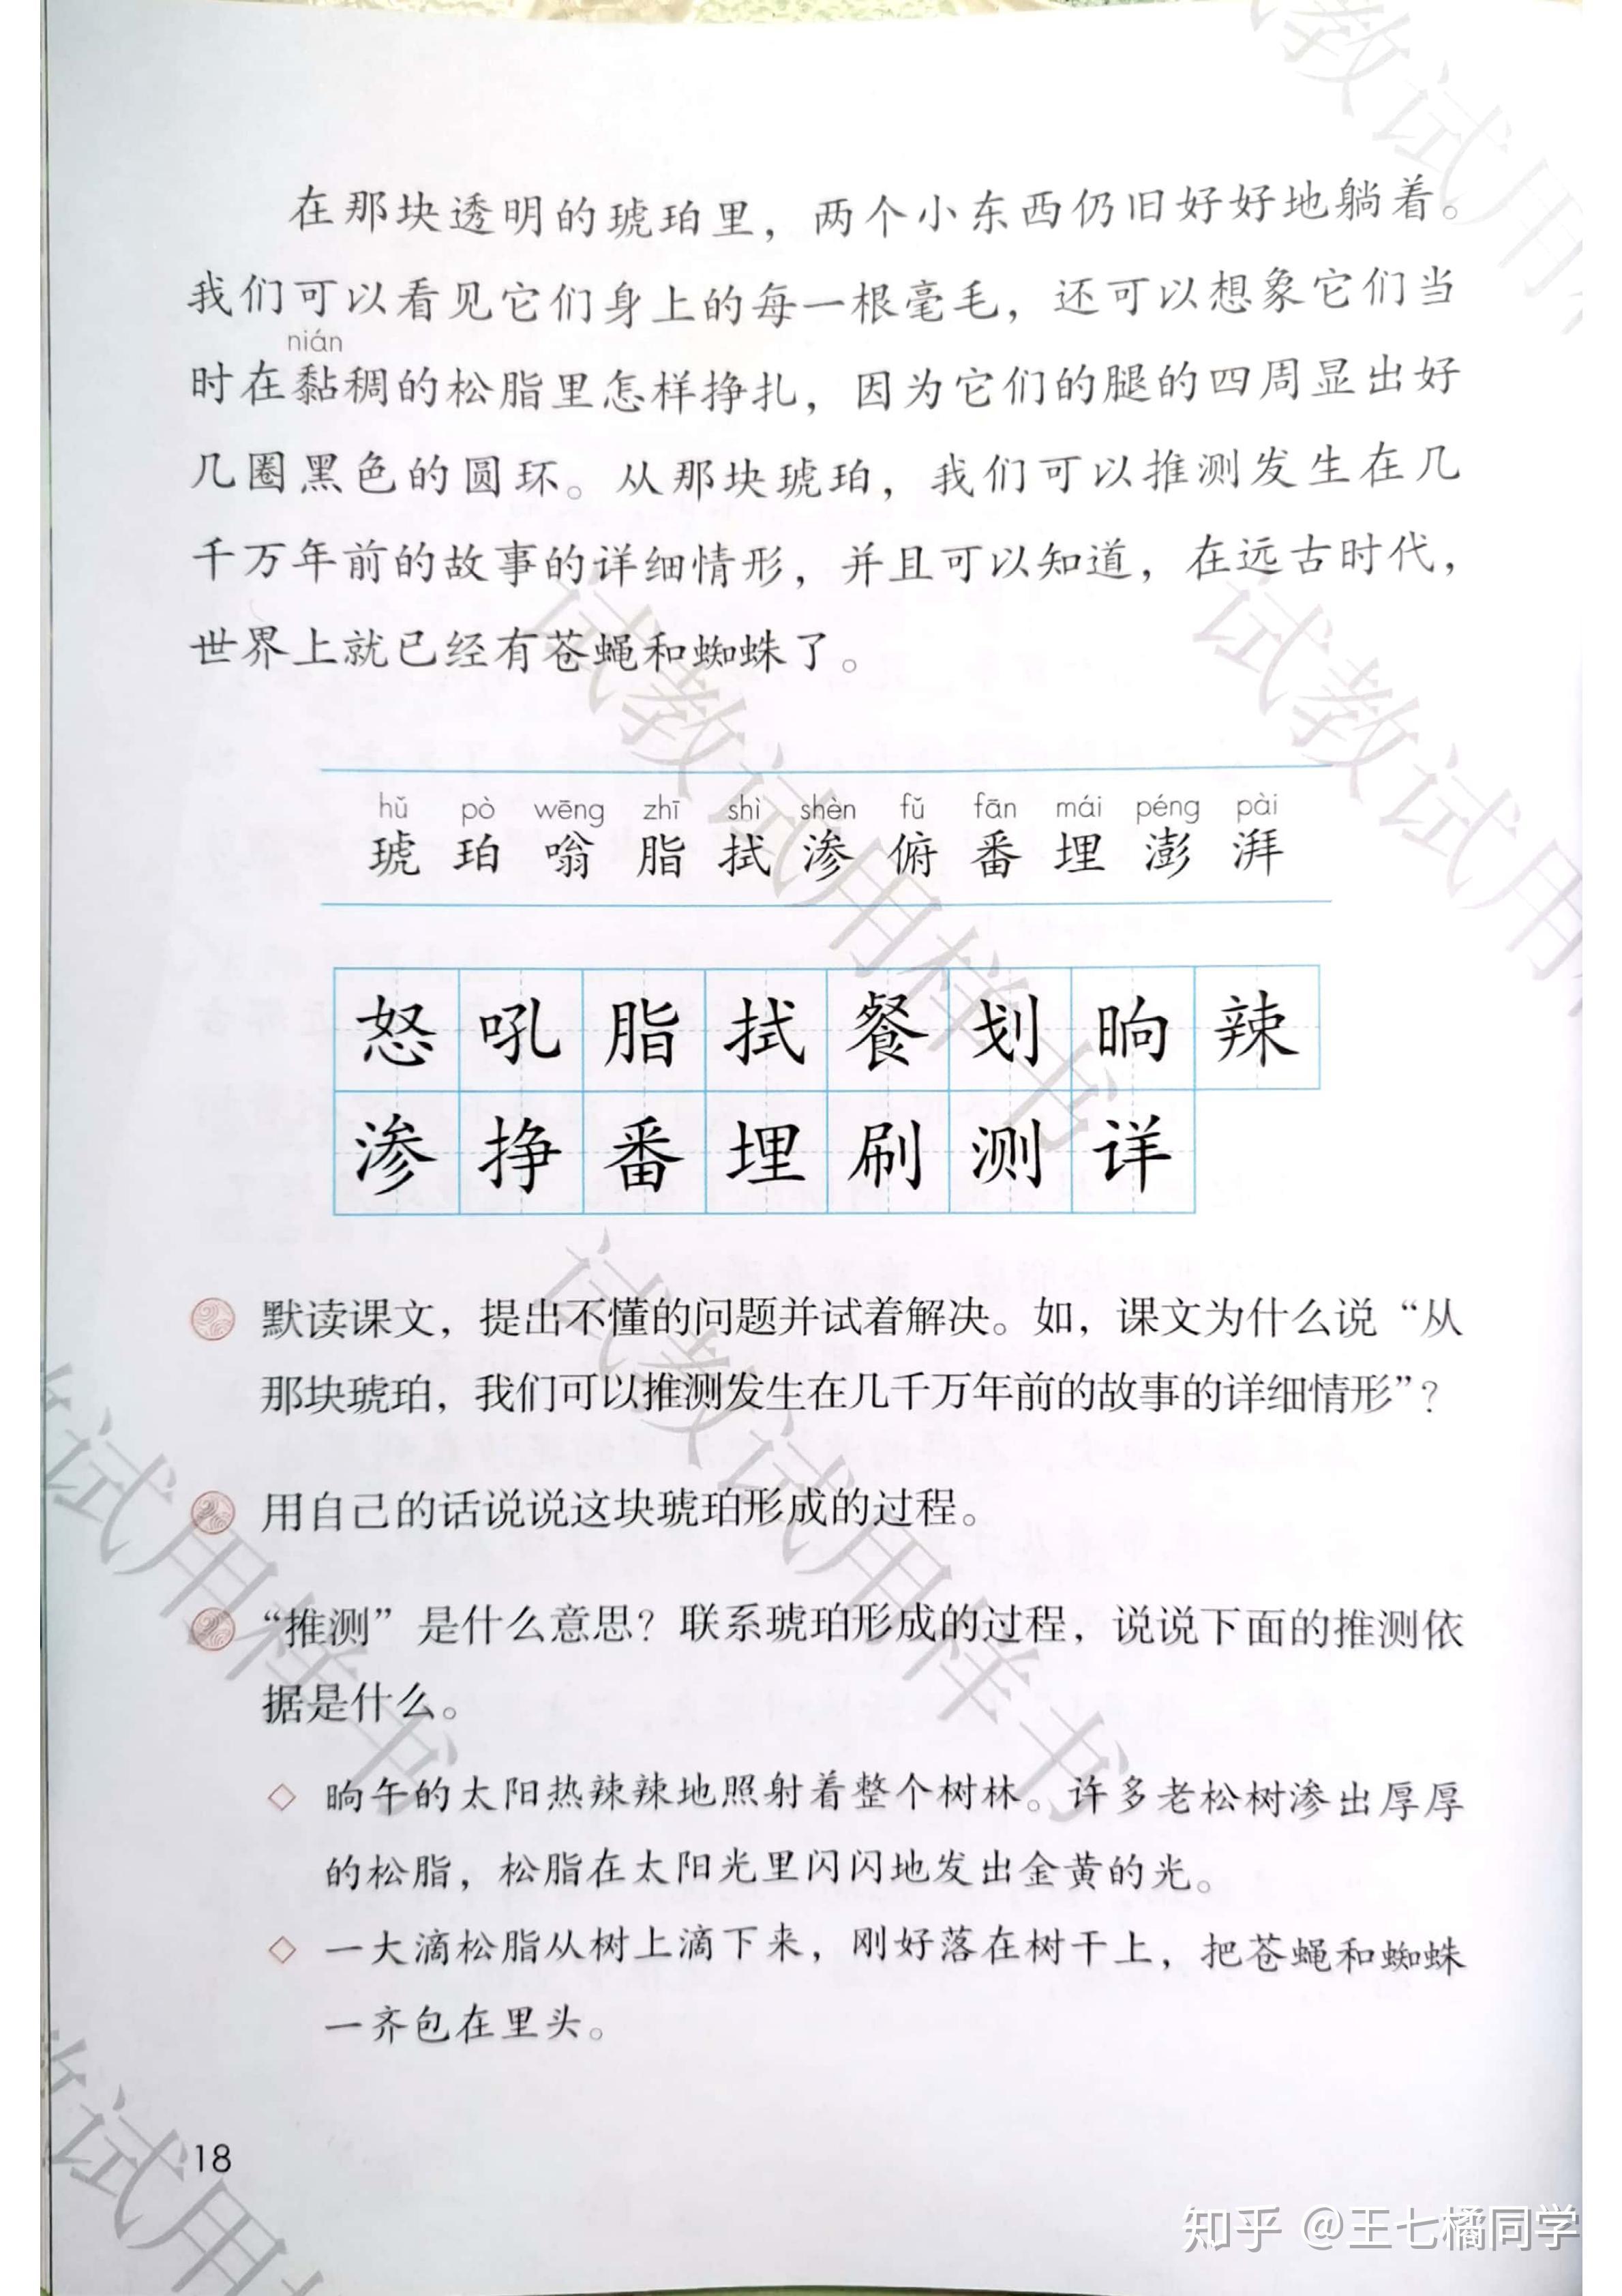 在那块透明的琥珀里，两个小东西仍旧好好地躺着。
我们可以看见它们身上的每一根毫毛，还可以想象它们当
nián
时在黏稠的松脂里怎样挣扎，因为它们的腿的四周显出好
几圈黑色的圆环。从那块琥珀，我们可以推测发生在几
千万年前的故事的详细情形，并且可以知道，在远古时代，
世界上就已经有苍蝇和蜘蛛了。
hǔ pò wēng zhī shì shèn fǔ fān mái péng pài
琥 珀 嗡 脂 拭 渗 俯 番 埋 澎 湃
怒 吼 脂 拭 餐 划 晌 辣
渗 挣 番 埋 刷 测 详
默读课文，提出不懂的问题并试着解决。如，课文为什么说“从
那块琥珀，我们可以推测发生在几千万年前的故事的详细情形”？
用自己的话说说这块琥珀形成的过程。
“推测”是什么意思？联系琥珀形成的过程，说说下面的推测依
据是什么。
◇ 晌午的太阳热辣辣地照射着整个树林。许多老松树渗出厚厚
的松脂，松脂在太阳光里闪闪地发出金黄的光。
◇ 一大滴松脂从树上滴下来，刚好落在树干上，把苍蝇和蜘蛛
一齐包在里头。
18
知乎 @王七橘同学
试教试用样书
试教试用样书
试教试用
教试用
教试用样书
教试用样